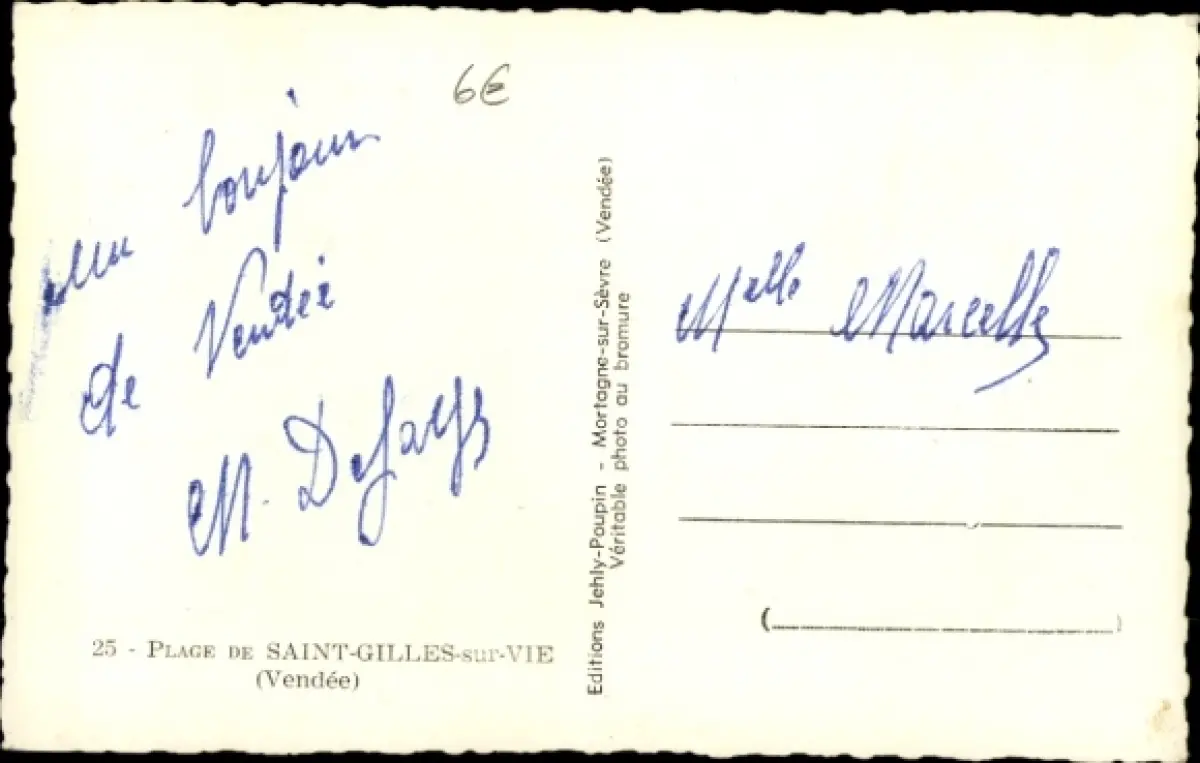 6€
un bonjour
de Vendée
M.
25 - PLAGE DE SAINT-GILLES-sur-VIE
(Vendée)
Editions Jehly-Poupin - Mortagne-sur-Sèvre (Vendée)
Véritable photo au bromure
Melle Marcelle